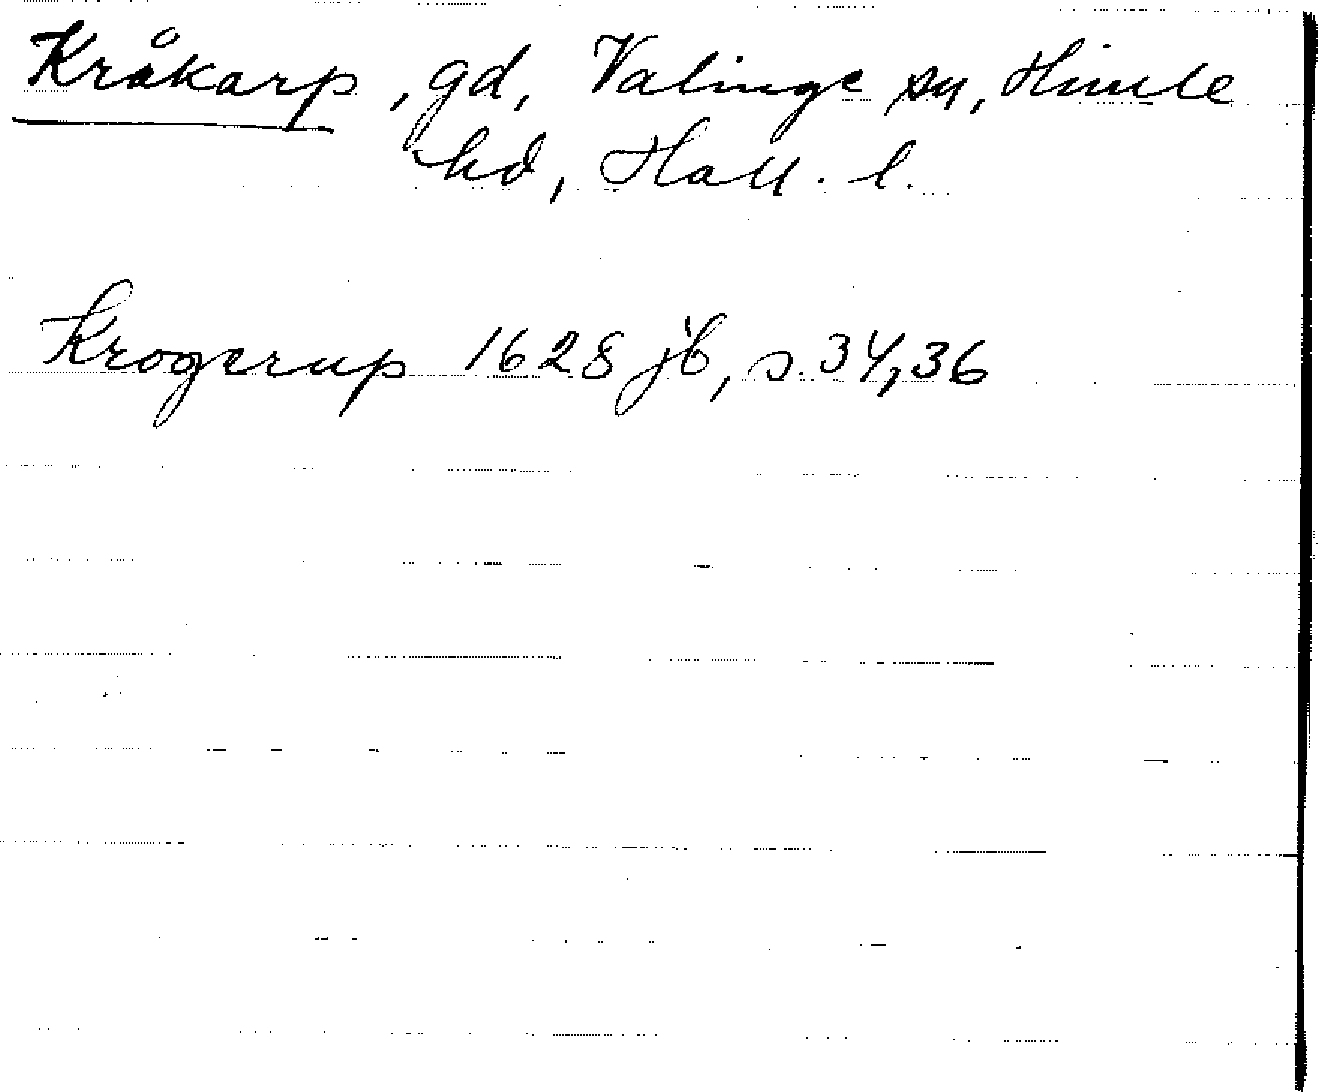 Kråkarp, gd, Valinge sn, Himle
hd, Hall. l.
Krogerup 1628 jb, s. 34, 36